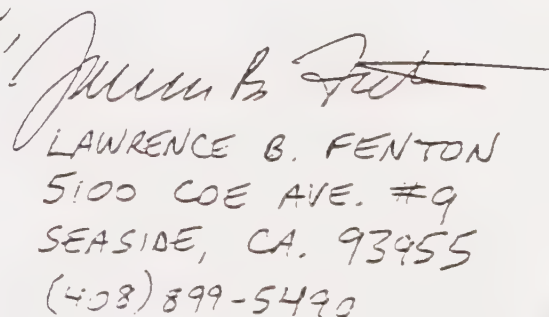 Lawrence B Fenton
LAWRENCE B. FENTON
5100 COE AVE. #9
SEASIDE, CA. 93955
(408) 899-5490